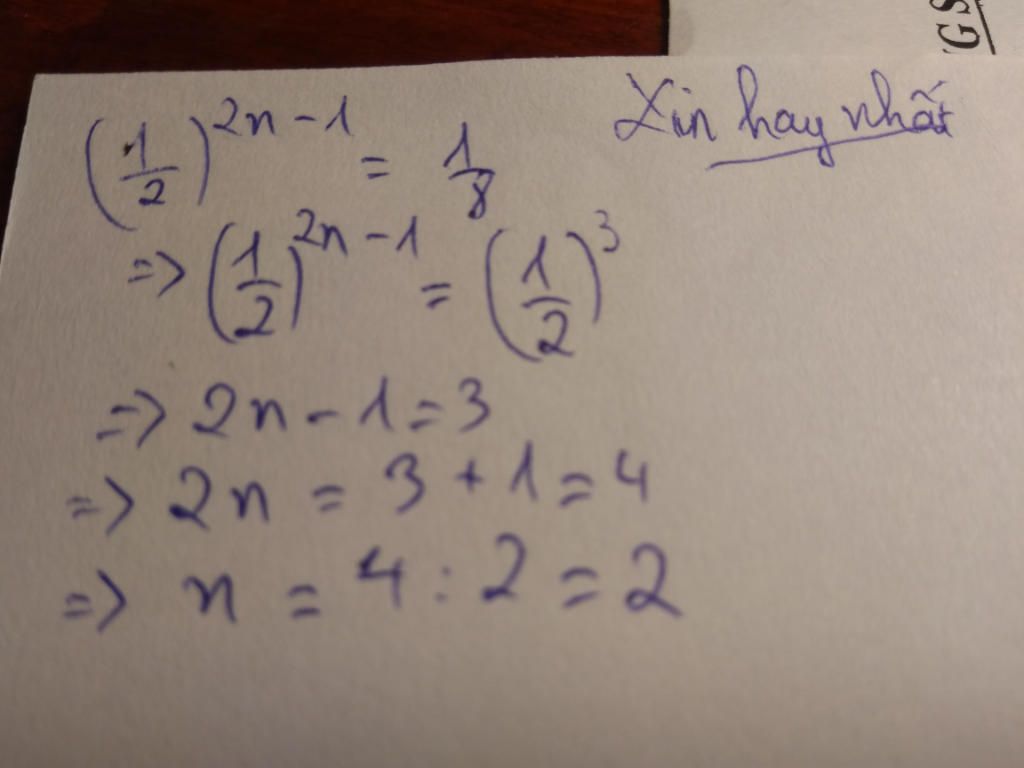 (1/2)^(2n-1) = 1/8
Xin hay nhất
=> (1/2)^(2n-1) = (1/2)^3
=> 2n - 1 = 3
=> 2n = 3 + 1 = 4
=> n = 4 : 2 = 2
GS